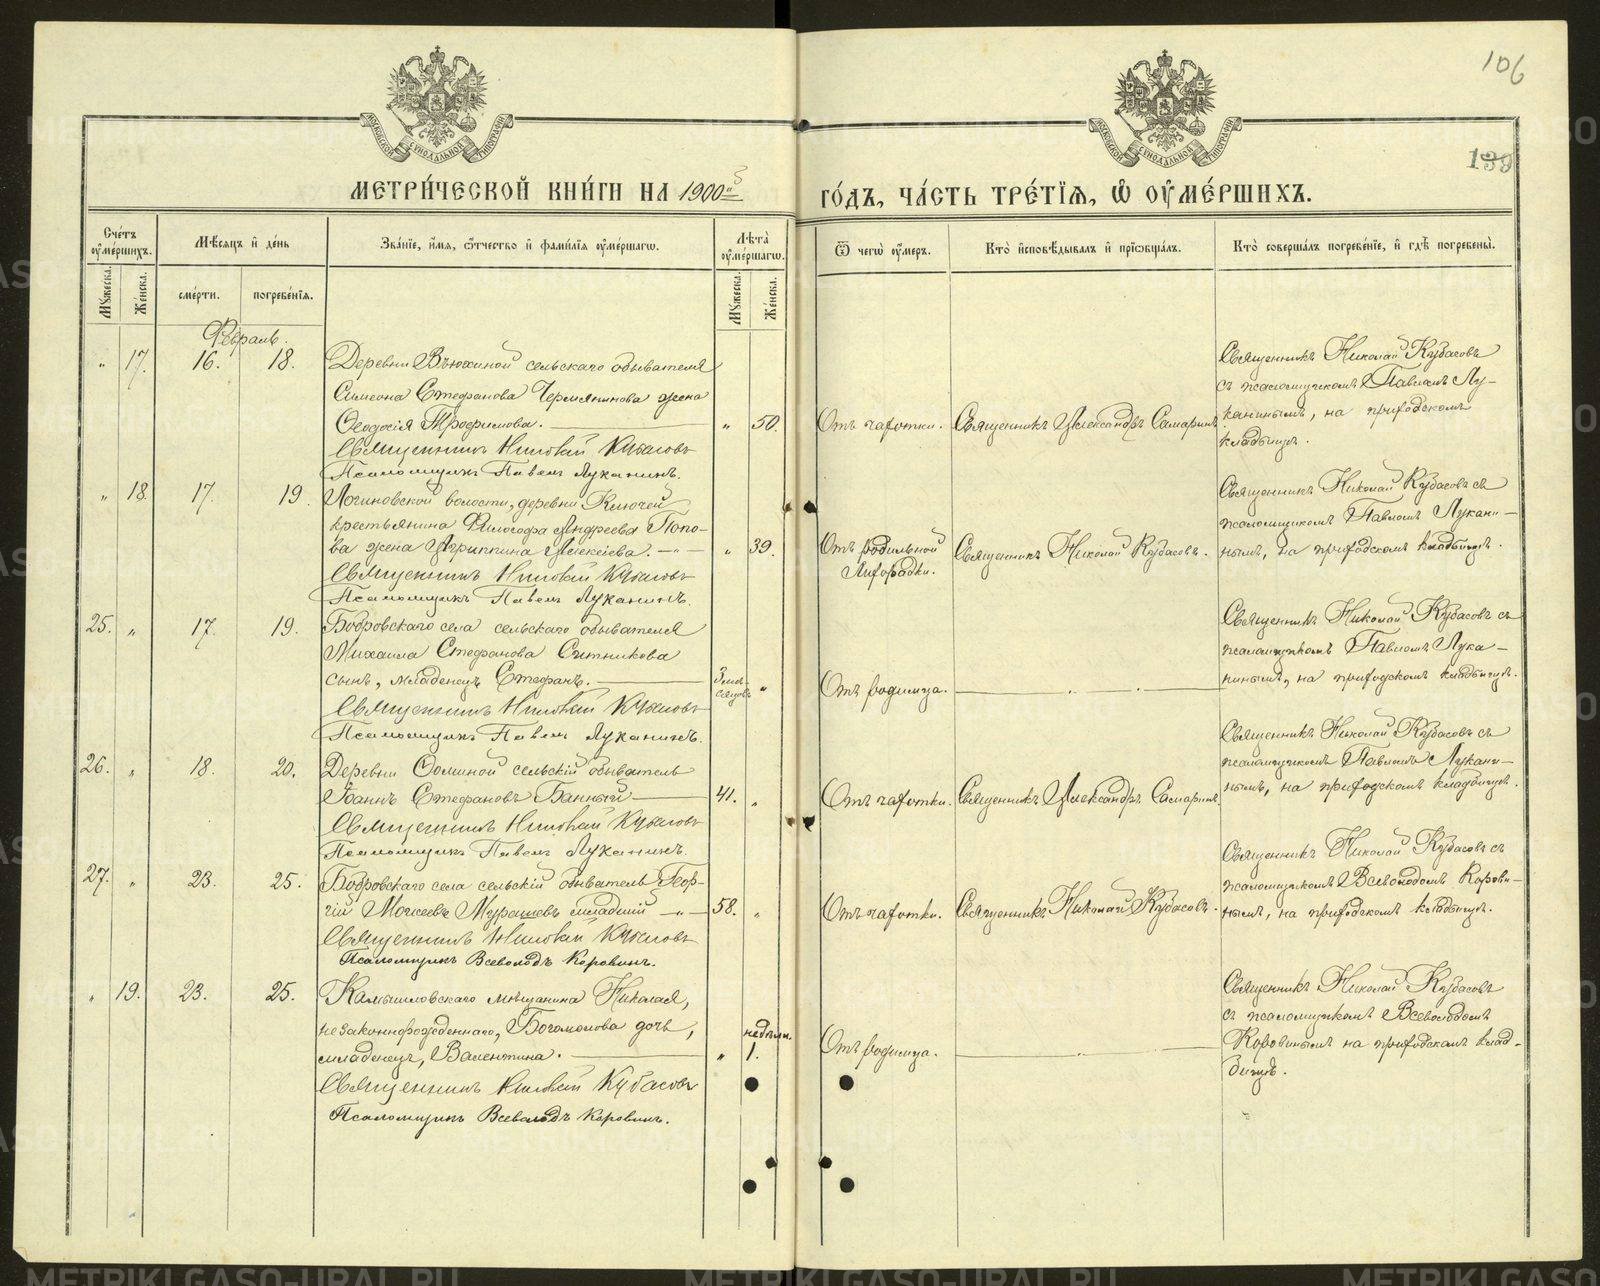 106
139
МОСКОВСКОЙ СѴНОДАЛЬНОЙ ТИПОГРАФІИ
МОСКОВСКОЙ СѴНОДАЛЬНОЙ ТИПОГРАФІИ
МЕТРИ́ЧЕСКОЙ КНИ́ГИ НА 1900й
ГО́ДЪ, ЧА́СТЬ ТРЕ́ТЇѦ, Ѽ ОУ҆МЕ́РШИХЪ.
Сче́тъ оу҆ме́ршихъ.
Мꙋ́жеска.
Же́нска.
Мѣ́сяцъ и҆ де́нь
сме́рти.
погребе́нїѧ.
Зва́нїе, и҆́мѧ, ѻ҆́тчество и҆ фамилїѧ оу҆ме́ршагѡ.
Лѣта̀ оу҆ме́ршагѡ.
Мꙋ́жеска.
Же́нска.
Ѿ чегѡ̀ оу҆́меръ.
Кто̀ и҆сповѣ́дывалъ и҆ прїѡбща́лъ.
Кто̀ соверша́лъ погребе́нїе, и҆ гдѣ̀ погребены̀.
Февраль.
" 17. 16. 18. Деревни Вьюхиной сельскаго обывателя
Симеона Стефанова Чермянинова жена
Ѳеодосія Трофимова. " 50.
Священникъ Николай Кубасовъ
Псаломщикъ Павелъ Луканинъ.
Отъ чахотки. Священникъ Александръ Самаринъ
Священникъ Николай Кубасовъ
съ псаломщикомъ Павломъ Лу-
канинымъ, на приходскомъ
кладбищѣ.
" 18. 17. 19. Логиновской волости, деревни Ключей
крестьянина Философа Андреева Попо-
ва жена Агриппина Алексѣева. — " — " 39.
Священникъ Николай Кубасовъ
Псаломщикъ Павелъ Луканинъ.
Отъ родильной
лихорадки.
Священникъ Николай Кубасовъ.
Священникъ Николай Кубасовъ съ
псаломщикомъ Павломъ Лукани-
нымъ, на приходскомъ кладбищѣ.
25. " 17. 19. Бобровскаго села сельскаго обывателя
Михаила Стефанова Ситникова
сынъ, младенецъ Стефанъ. 3 мѣ-
сяцовъ "
Священникъ Николай Кубасовъ
Псаломщикъ Павелъ Луканинъ.
Отъ родимца.
Священникъ Николай Кубасовъ съ
псаломщикомъ Павломъ Лука-
нинымъ, на приходскомъ кладбищѣ.
26. " 18. 20. Деревни Ѳоминой сельскій обыватель
Іоаннъ Стефановъ Банный 41. "
Священникъ Николай Кубасовъ
Псаломщикъ Павелъ Луканинъ.
Отъ чахотки. Священникъ Александръ Самаринъ.
Священникъ Николай Кубасовъ съ
псаломщикомъ Павломъ Лукани-
нымъ, на приходскомъ кладбищѣ.
27. " 23. 25. Бобровскаго села сельскій обыватель Геор-
гій Моисеевъ Мурашевъ младшій — " — 58. "
Священникъ Николай Кубасовъ
Псаломщикъ Всеволодъ Коровинъ.
Отъ чахотки. Священникъ Николай Кубасовъ.
Священникъ Николай Кубасовъ съ
псаломщикомъ Всеволодомъ Корови-
нымъ, на приходскомъ кладбищѣ.
" 19. 23. 25. Камышловскаго мѣщанина Николая,
незаконнорожденнаго, Богомолова дочь,
младенецъ, Валентина. " недѣли.
1.
Священникъ Николай Кубасовъ
Псаломщикъ Всеволодъ Коровинъ.
Отъ родимца.
Священникъ Николай Кубасовъ
съ псаломщикомъ Всеволодомъ
Коровинымъ на приходскомъ клад-
бищѣ.
METRIKI.GASO-URAL.RU